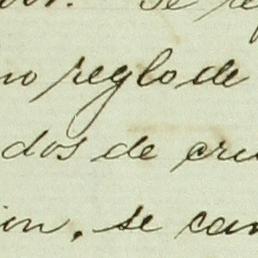 se re
no reglo de
dos de cru
in, se can